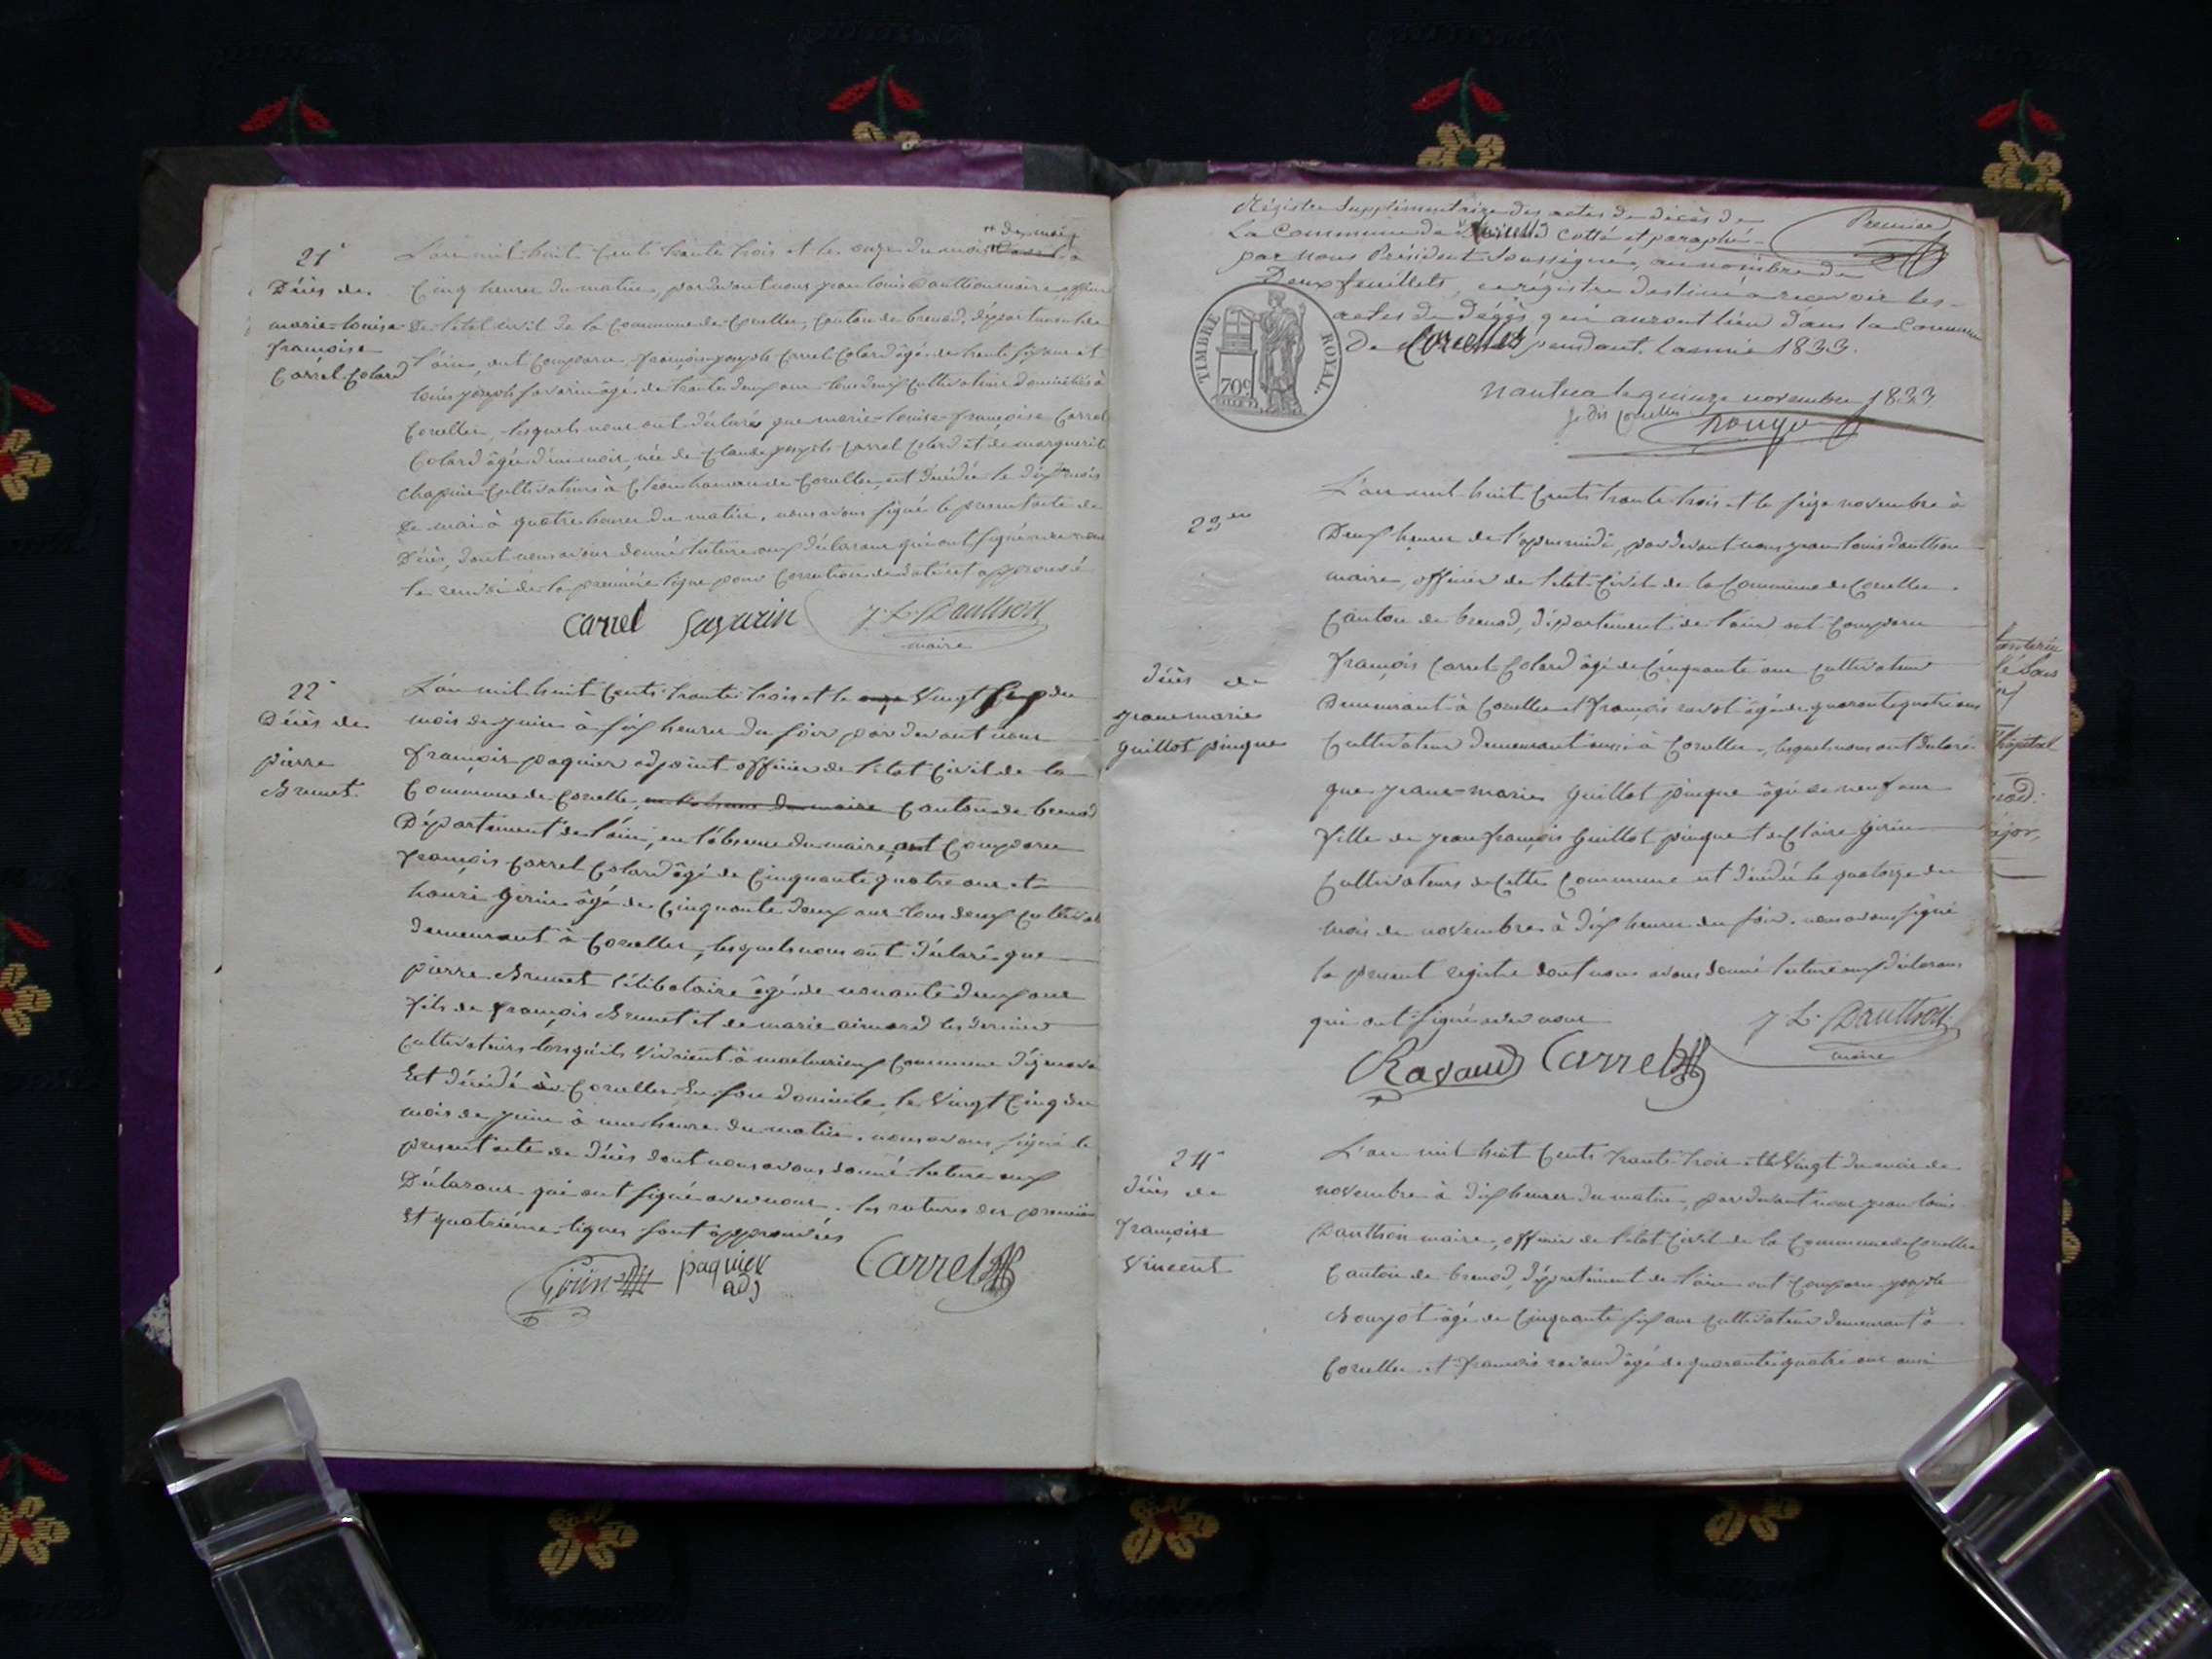 21e
Décès de
marie-louise
françoise
Carrel-Colard
L'an mil huit Cents trente trois et le onze du mois de mai à
Cinq heures du matin, pardevant nous jean louis Dauthon maire officier
de l'état civil de la Commune de Corcelles, Canton de brenod, département de
l'ain, ont Comparu françois joseph Carrel-Colard âgé de trente ans et
louis joseph savarin âgé de trente deux ans tous deux Cultivateurs domiciliés à
Corcelles, lesquels nous ont déclaré que marie-louise-françoise Carrel
Colard âgée d'un mois, née de Claude joseph Carrel Colard et de marguerite
Chapuis Cultivateurs à hameau de Corcelles, est décédée le dix
de mai à quatre heures du matin, nous avons signé le présent acte de
Décès, dont nous avons donné lecture aux déclarans qui ont signé avec nous
le renvoi de la première ligne pour Correction de date est approuvé
Carrel Savarin J. L. Dauthon
maire
22e
Décès de
pierre
Brunet.
L'an mil huit Cents trente trois et le onze Vingt Sep du
mois de juin à six heures du soir par devant nous
françois paquier adjoint officier de l'état Civil de la
Commune de Corcelle, en l'absence du maire Canton de brenod
Département de l'ain, en l'absence du maire, ont Comparu
françois Carrel Colard âgé de Cinquante quatre ans et
henri Girin âgé de Cinquante deux ans tous deux Cultivat
demeurant à Corcelles, lesquels nous ont déclaré que
pierre Brunet Célibataire âgé de nonante deux ans
fils de françois Brunet et de marie aimard les derniers
Cultivateurs lorsqu'ils vivaient à Commune
Est décédé à Corcelles En son domicile, le Vingt Cinq du
mois de juin à une heure du matin. nous avons signé le
présent acte de Décès dont nous avons donné lecture aux
Déclarans qui ont signé avec nous. les ratures des première
Et quatrième lignes sont approuvées
Girin paquier Carrel
adj
Régistre Supplémentaire des actes de décès de
La Commune de Cotté et paraphé
Premier
par Nous Président Soussigné, au nombre de
Deux feuillets, ce régistre destiné à recevoir les
actes de Décès qui auront lieu dans la Commune
De Corcelles pendant l'année 1833.
TIMBRE ROYAL.
70c
Nantua le quinze novembre 1833
Je dis Corcelles
23eme
Décès de
jeanne marie
guillot pinque
L'an mil huit Cents trente trois et le seize novembre à
Deux heures de l'après midi, pardevant nous jean louis dauthon
maire, officier de l'état Civil de la Commune de Corcelles
Canton de brenod, département de l'ain ont Comparu
françois Carrel-Colard âgé de Cinquante ans Cultivateur
Demeurant à Corcelles et françois ravot âgé de quarante quatre ans
Cultivateur demeurant aussi à Corcelles, lesquels nous ont déclaré
que jeanne-marie guillot pinque âgée de neuf ans
fille de jean françois guillot pinque et de Claire Girin
Cultivateurs de Cette Commune est décédée le quatorze du
mois de novembre à dix heures du soir. nous avons signé
le présent registre dont nous avons donné lecture aux déclarans
qui ont signé avec nous J. L. Dauthon
maire
Ravaud Carrel
24e
Décès de
françoise
Vincent
L'an mil huit Cents trente trois et le Vingt du mois de
novembre à dix heures du matin, pardevant nous jean louis
Dauthon maire, officier de l'état Civil de la Commune de Corcelles
Canton de brenod, département de l'ain ont Comparu joseph
âgé de Cinquante six ans Cultivateur demeurant à
Corcelles et françois ravaud âgé de quarante quatre ans aussi